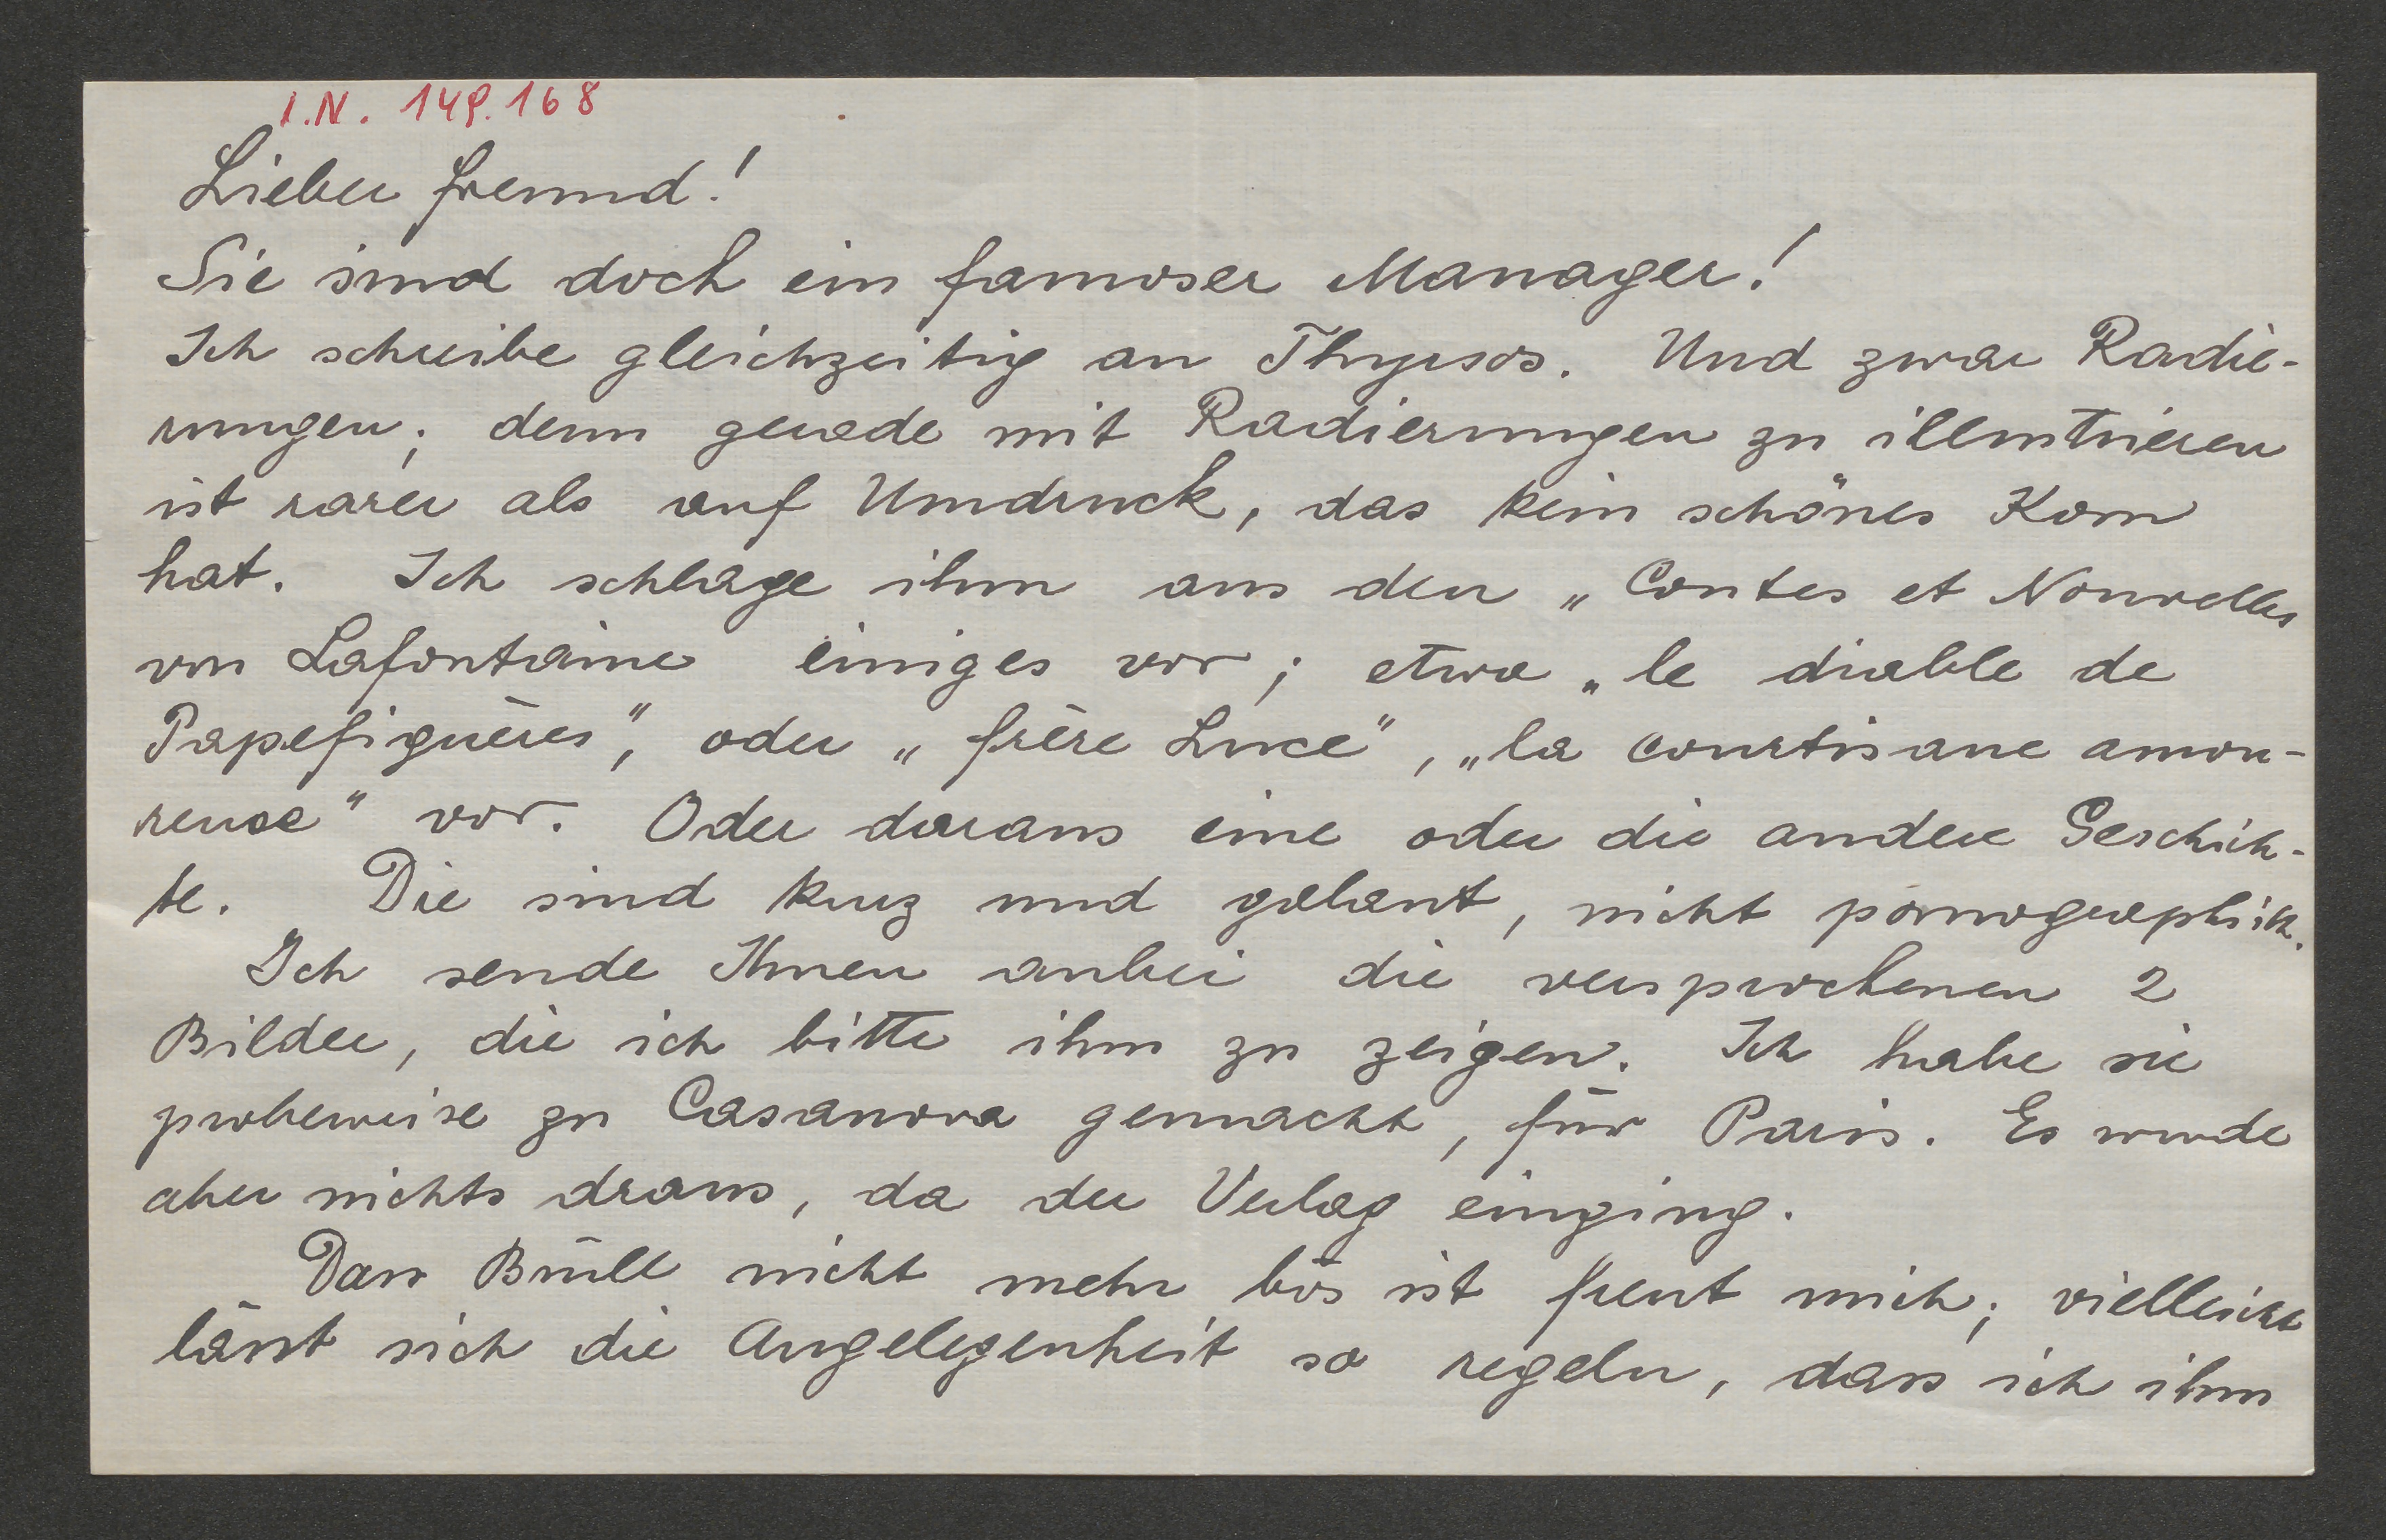 I.N. 149.168
Lieber Freund!
Sie sind doch ein famoser Manager!
Ich schreibe gleichzeitig an Thyrsos. Und zwar Radie-
rungen; denn gerade mit Radierungen zu illustrieren
ist rarer als auf Umdruck, das kein schönes Korn
hat. Ich schlage ihm aus den „Contes et Nouvelles
von Lafontaine einiges vor; etwa „le diable de
Papefiguères“, oder „frère Luce“, „la courtisane amou-
reuse“ vor. Oder daraus eine oder die andere Geschich-
te. Die sind kurz und galant, nicht pornographisch.
Ich sende Ihnen anbei die versprochenen 2
Bilder, die ich bitte ihm zu zeigen. Ich habe sie
probeweise zu Casanova gemacht, für Paris. Es wurde
aber nichts draus, da der Verlag einging.
Dass Brüll nicht mehr bös ist freut mich; vielleicht
lässt sich die Angelegenheit so regeln, dass ich ihm